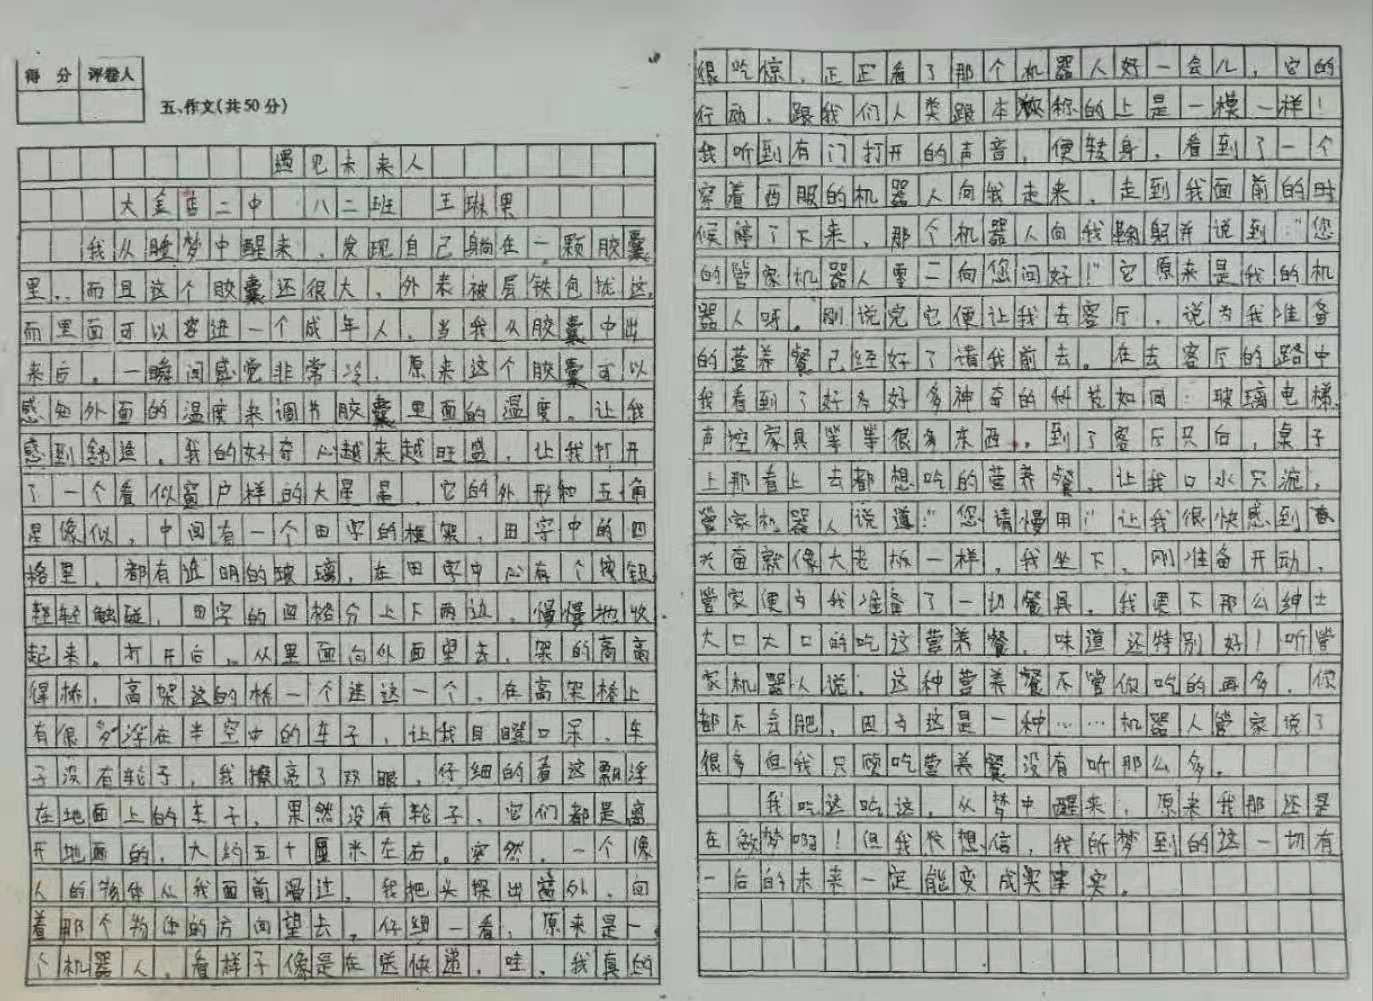 得 分 评卷人
五、作文(共50分)
遇见未来人
大金店二中 八二班 王琳果
我从睡梦中醒来，发现自己躺在一颗胶囊
里，而且这个胶囊还很大，外表被层铁包拢这，
而里面可以容进一个成年人，当我从胶囊中出
来后。一瞬间感觉非常冷，原来这个胶囊可以
感知外面的温度来调节胶囊里面的温度。让我
感到舒适。我的好奇心越来越旺盛，让我打开
了一个看似窗户样的大星星，它的外形和五角
星像似，中间有一个田字的框架，田字中的四
格里，都有透明的玻璃，在田字中心有个按钮
轻轻触碰，田字的四格分上下两边，慢慢地收
起来。打开后，从里面向外面望去，架的高高
得桥，高架这的桥一个连这一个，在高架桥上
有很多浮在半空中的车子，让我目瞪口呆，车
子没有轮子，我擦亮了双眼，仔细的看这飘浮
在地面上的车子，果然没有轮子，它们都是离
开地面的，大约五十厘米左右。突然，一个像
人的物体从我面前漫过，我把头探出窗外，向
着那个物体的方向望去，仔细一看，原来是一
个机器人，看样子像是在送快递，哇，我真的
很吃惊，正正看了那个机器人好一会儿，它的
行动，跟我们人类跟本称的上是一模一样！
我听到有门打开的声音，便转身，看到了一个
穿着西服的机器人向我走来，走到我面前的时
候停了下来，那个机器人向我鞠躬并说到："您
的管家机器人零二向您问好！"它原来是我的机
器人呀。刚说完它便让我去客厅，说为我准备
的营养餐已经好了请我前去。在去客厅的路中
我看到了好多好多神奇的科技如同：玻璃电梯，
声控家具等等很多东西。到了客厅只后，桌子
上那看上去都想吃的营养餐，让我口水只流，
管家机器人说道："您请慢用！"让我很快感到
兴奋就像大老板一样，我坐下，刚准备开动，
管家便为我准备了一切餐具，我便不那么绅士
大口大口的吃这营养餐，味道还特别好！听管
家机器人说，这种营养餐不管你吃的再多，你
都不会肥，因为这是一种……机器人管家说了
很多但我只顾吃营养餐没有听那么多。
我吃这吃这，从梦中醒来，原来我那还是
在做梦啊！但我相信，我所梦到的这一切有
一后的未来一定能变成实事实。